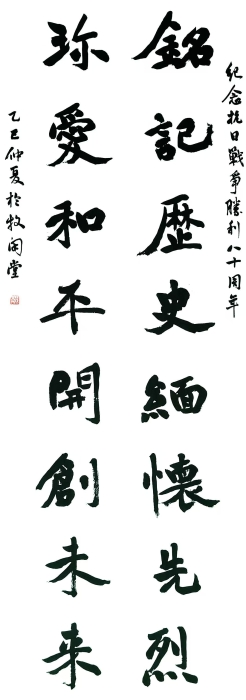 紀念抗日戰爭勝利八十周年
銘記歷史緬懷先烈
珍愛和平開創未来
乙巳仲夏於牧閑堂